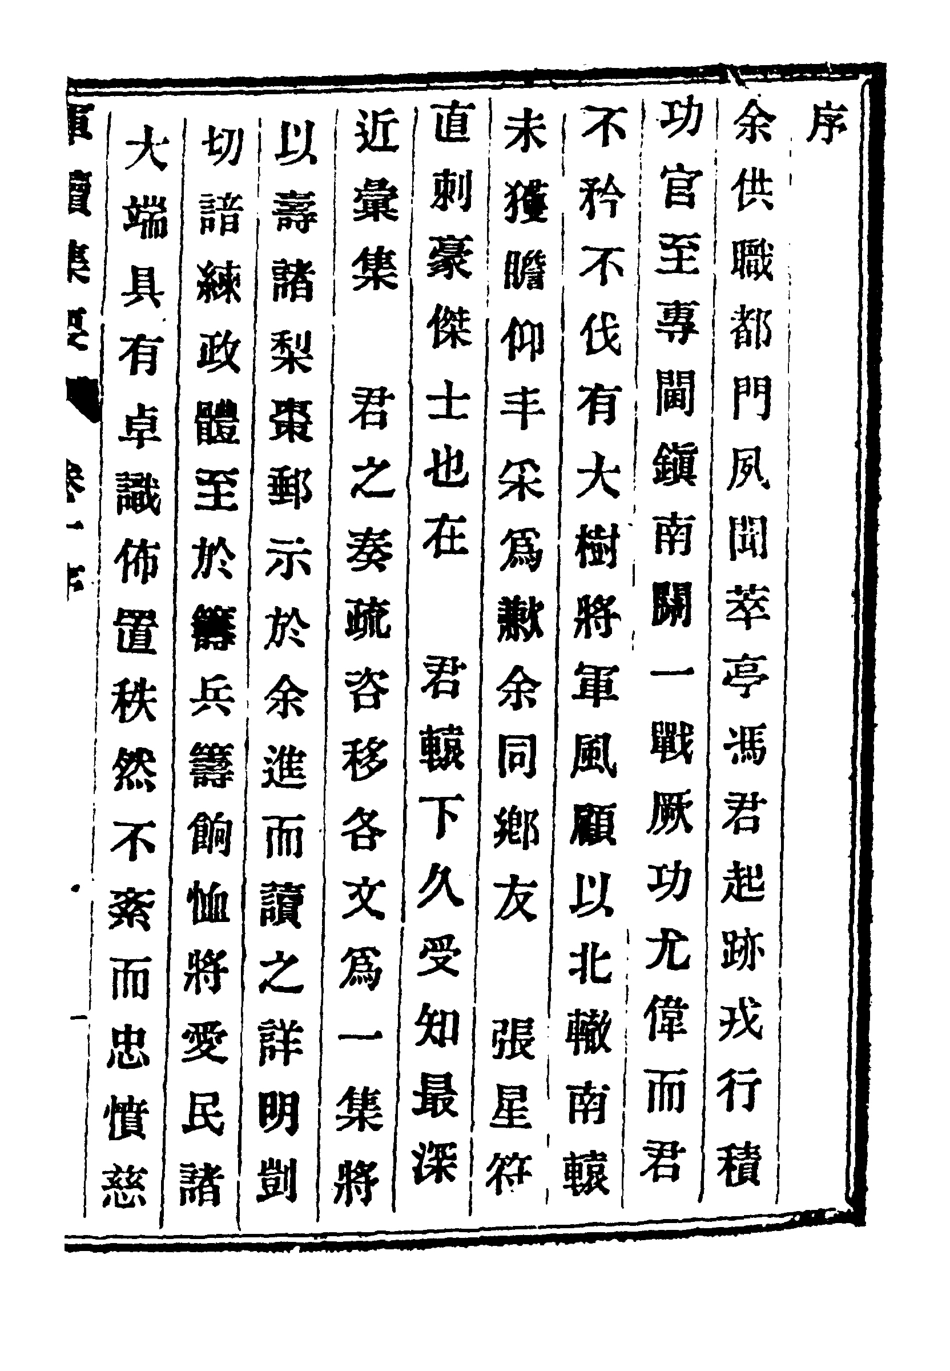 序
余供職都門夙聞萃亭馮君起跡戎行積
功官至專閫鎭南關一戰厥功尤偉而君
不矜不伐有大樹將軍風顧以北轍南轅
未獲瞻仰丰采爲歉余同鄕友　張星符
直刺豪傑士也在　君轅下久受知最深
近彙集　君之奏疏咨移各文爲一集將
以壽諸梨棗郵示於余進而讀之詳明剴
切諳練政體至於籌兵籌餉恤將愛民諸
大端具有卓識佈置秩然不紊而忠憤慈
軍牘集要　卷一序